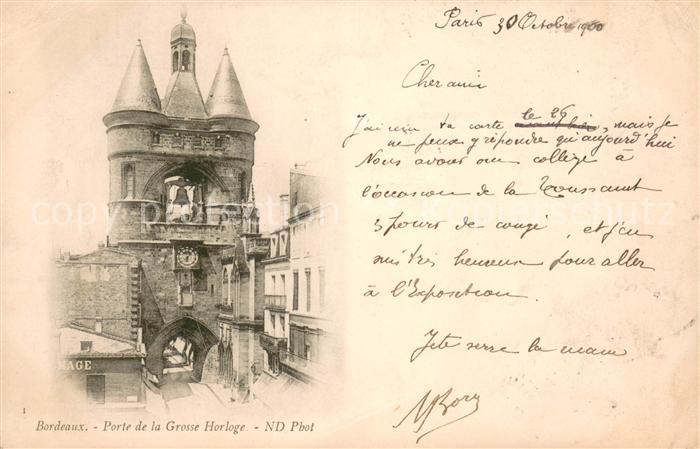 Paris 30 Octobre 1900
Cher ami
le 26
J'ai reçu ta carte, mais je
ne peux y répondre qu'aujourd'hui
Nous avons au collège à
l'occasion de la Toussaint
3 jours de congé, et j'en
suis très heureux pour aller
à l'Exposition.
Je te serre la main
MBory
MAGE
1
Bordeaux. - Porte de la Grosse Horloge. - ND Phot
copyright